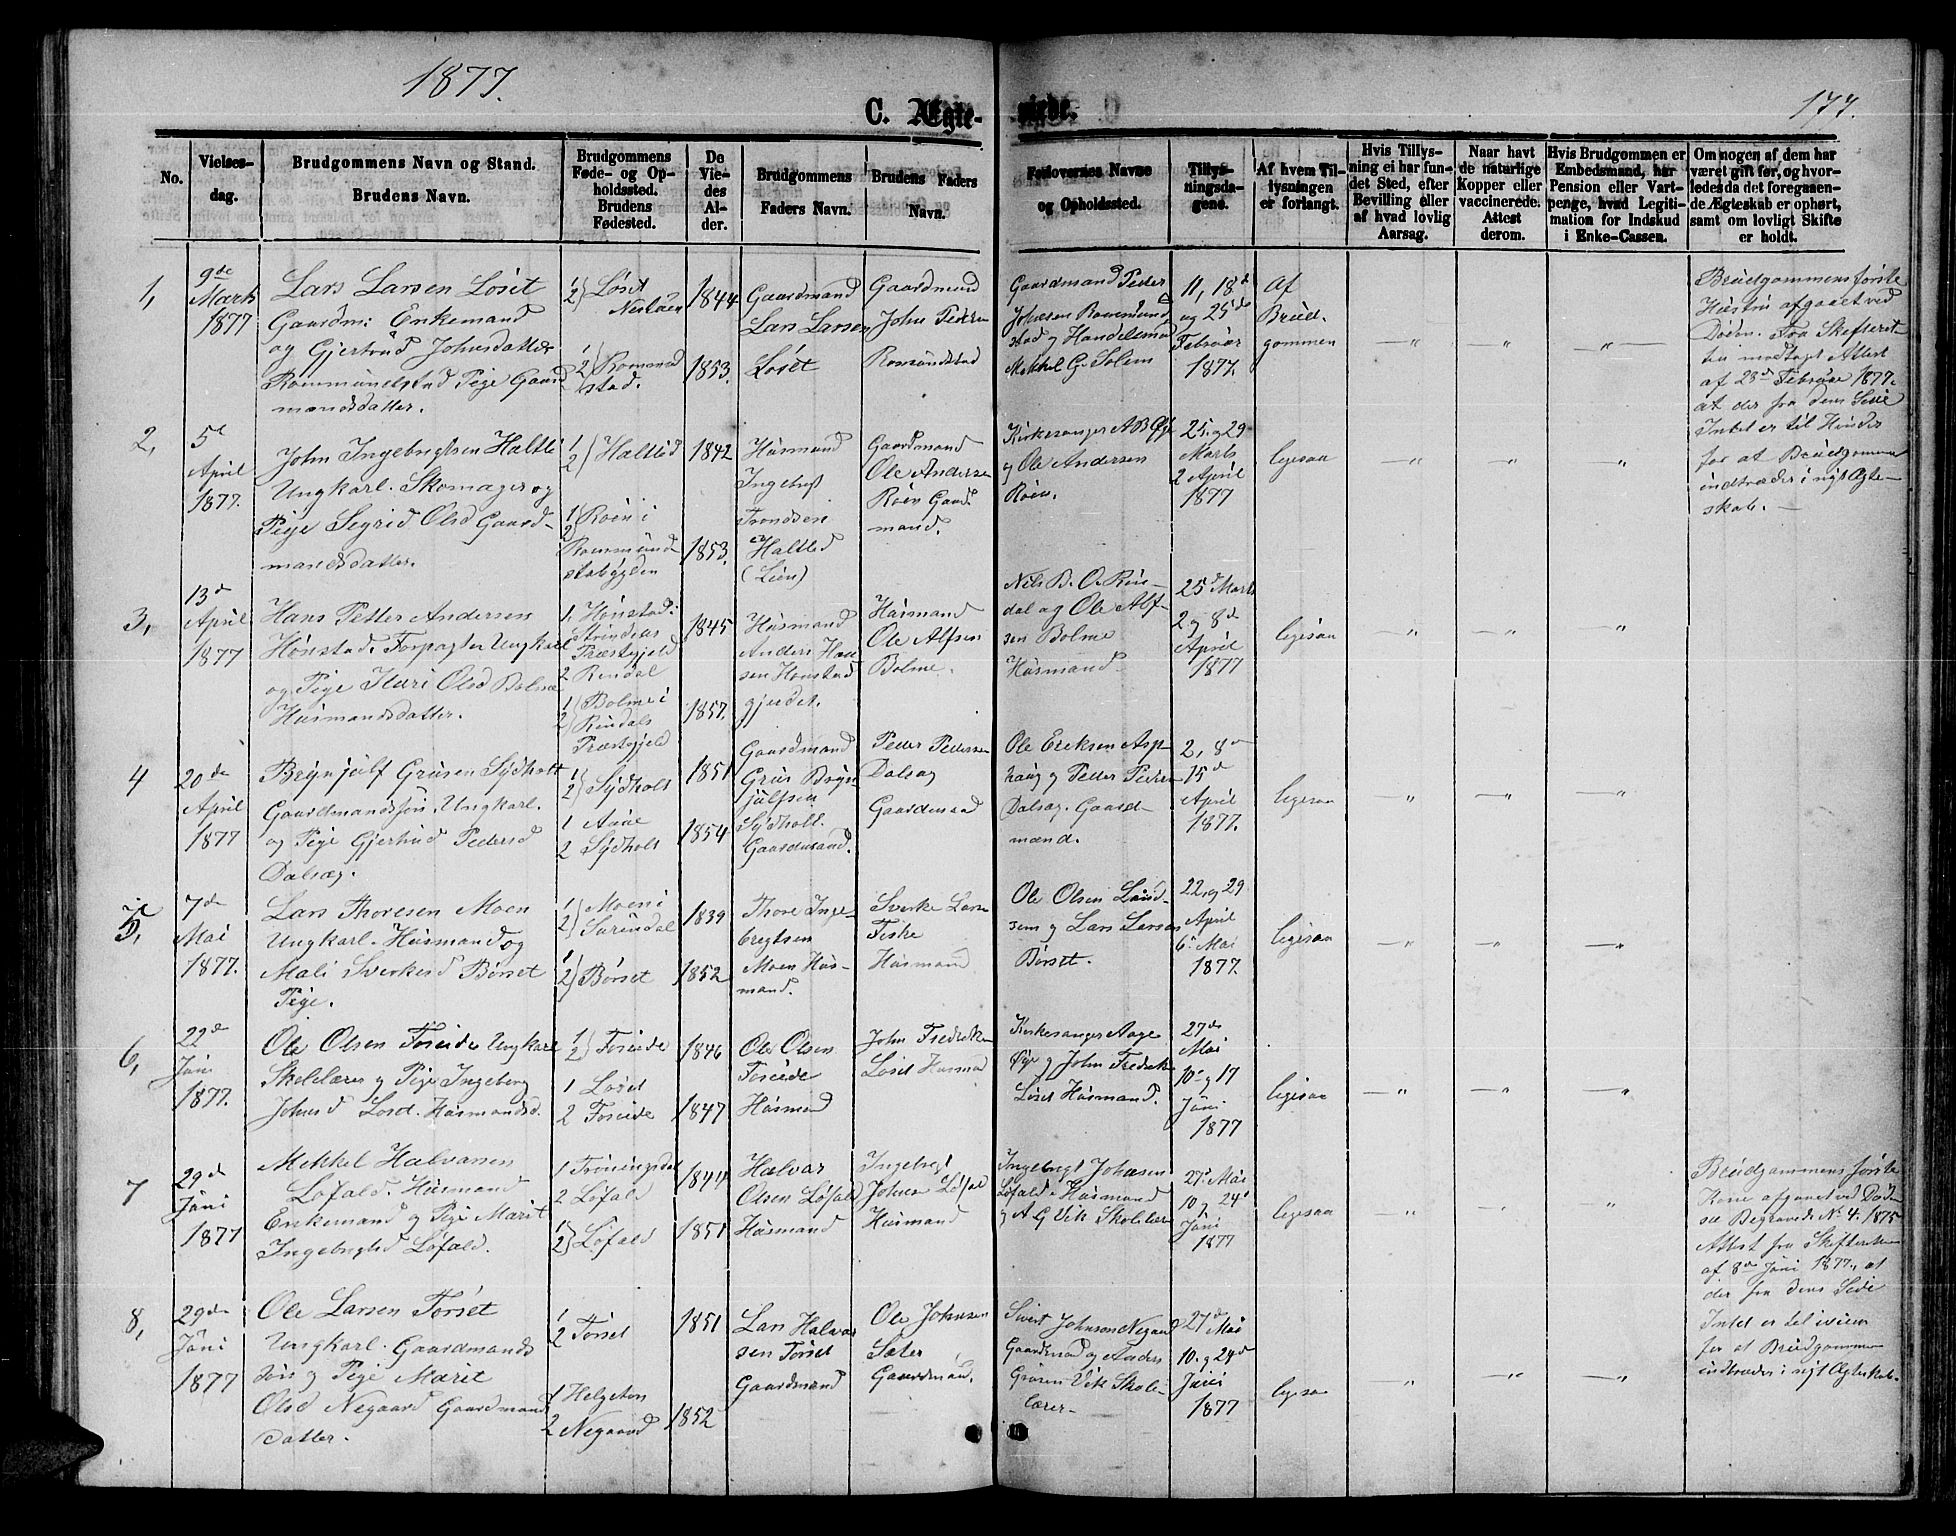 1877.
177.
C. Ægte-
viede.
No.
Vielses-
dag.
Brudgommens Navn og Stand.
Brudens Navn.
Brudgommens
Føde- og Op-
holdssted.
Brudens
Fødested.
De
Vie-
des
Al-
der.
Brudgommens
Faders Navn.
Brudens Faders
Navn.
Forlovernes Navne
og Opholdssted.
Tillys-
ningsda-
gene.
Af hvem Til-
lysningen
er forlangt.
Hvis Tillys-
ning ei har fun-
det Sted, efter
Bevilling eller
af hvad lovlig
Aarsag.
Naar havt
de naturlige
Kopper eller
vaccinerede.
Attest
derom.
Hvis Brudgommen er
Embedsmand, har
Pension eller Vart-
penge, hvad Legiti-
mation for Indskud
i Enke-Cassen.
Om nogen af dem har
været gift før, og hvor-
ledes da det foregaaen-
de Ægteskab er ophørt,
samt om lovligt Skifte
er holdt.
1,
9de
Marts
1877
Lars Larsen Löset
Gaardm: Enkemand
og Gjertrud Johnsdatter
Rommundstad Pige Gaard
mandsdatter.
1
2) Löset
1
2) Romund
stad.
1844
1853.
Gaardmand
Lars Larsen
Löset
Gaardmand
John Pedersen
Romundstad
Gaardmand Peder
Johnsen Rommund
stad og Handelsmand
Mikkel G. Solem
11, 18de
og 25de
Februar
1877.
Af
Brud-
gommen
— " —
— " —
— " —
Brudgommens første
Hustru afgaaet ved
Døden. Fra Skifteret
ten modtaget Attest
af 23de Februar 1877.
at der fra dens Side
Intet er til Hinder
for at Brudgommen
indtræder i nyt Ægte-
skab. —
2,
5te
April
1877.
John Ingebrigtsen Haltli
Ungkarl. Skomager og
Pige Segrid Olsd Gaard-
mandsdatter.
1
2) Haltlid
1) Röen i
2
Rommund
stadbygden
1842
1853.
Husmand
Ingebrigt
Trondsen
Haltlid
(Lien)
Gaardmand
Ole Andersen
Röen Gaard
mand.
Kirkesanger A B Øye
og Ole Andersen
Röen.
25. og 29
Marts
2 April
1877
ligesaa
— " —
— " —
— " —
3,
13de
April
1877
Hans Petter Andersen
Hönstad. Forpagter Ungkarl
og Pige Kari Olsd Bolme
Husmandsdatter.
1, Hönstad i
Strindens
Præstegjeld
2 Rindal
1) Bolme i
2) Rindals
Præstegjeld
1845
1857.
Husmand
Anders Han
sen Hönstad
gjerdet.
Husmand
Ole Alfsen
Bolme.
Nils B. O. Rin-
dal og Ole Alf-
sen Bolme
Husmand.
25de Marts
2 og 8de
April
1877
ligesaa
— " —
— " —
— " —
4
20de
April
1877
Brynjulf Grusen Sydholt
Gaardmandssön, Ungkarl.
og Pige Gjertrud Pedersd
Dalsæg.
1
2) Sydholt
1 Aune
2 Sydholt
1851
1854
Gaardmand
Grus Bryn
julfsen
Sydholt.
Gaardmand.
Petter Pedersen
Dalsæg
Gaardmand
Ole Eriksen Asp-
haug og Petter Pedersen
Dalsæg. Gaard-
mænd.
2, 8de
15de
April
1877.
ligesaa
— " —
— " —
— " —
5,
7de
Mai
1877.
Lars Thoresen Moen
Ungkarl. Husmand og
Mali Sverkesd Børset
Pige.
1) Moen i
2) Surendal
1
2) Børset
1839
1852
Thore Inge-
bregtsen
Moen Hus-
mand.
Sverke Larsen
Fiske
Husmand
Ole Olsen Land-
sem og Lars Larsen
Børset.
22, og 29
April
6te Mai
1877.
ligesaa
— " —
— " —
— " —
6,
22de
Juni
1877.
Ole Olsen Toreide Ungkarl
Skolelærer og Pige Ingeborg
Johnsd Löset. Husmandsd.
1
2) Toreide
1 Löset
2 Toreide
1846
1847
Ole Olsen
Toreide
Husmand
John Fredriksen
Löset Husmand
Kirkesanger Aage
Øye og John Fredriksen
Löset Husmand.
27de
Mai
10de og 17
Juni
1877
ligesaa
— " —
— " —
— " —
7
29de
Juni
1877
Mekkel Halvarsen
Löfald. Husmand
Enkemand og Pige Marit
Ingebrigtsd Löfald.
1 Tröningsdal
2 Löfald
1
2) Löfald
1844
1851
Halvar
Olsen Löfald
Husmand
Ingebrigt
Johnsen Löfald
Husmand
Ingebrigt Johnsen
Löfald. Husmand
og A G Vik Skolelærer
27de Mai
10 og 24de
Juni
1877
ligesaa
— " —
— " —
"
Brudgommens første
Kone afgaaet ved Døden
se Begravede No 4. 1875
Attest fra Skifteretten
af 8de Juni 1877, at
der fra dens Side
Intet er til veien
for at Brudgommen
indtræder i nyt Ægteskab.
8,
29de
Juni
1877
Ole Larsen Torset
Ungkarl. Gaardmands
sön og Pige Marit
Olsd Negaard Gaardmands
datter.
1
2 Torset
1 Helgeton
2 Negaard
1851
1852
Lars Halvar
sen Torset
Gaardmand
Ole Johnsen
Sæter
Gaardmand.
Sivert Johnsen Negaard
Gaardmand og Anders
Grusen Vik Skole-
lærer.
27de
Mai
10. og 24de
Juni
1877
ligesaa
"
— " —
— " —